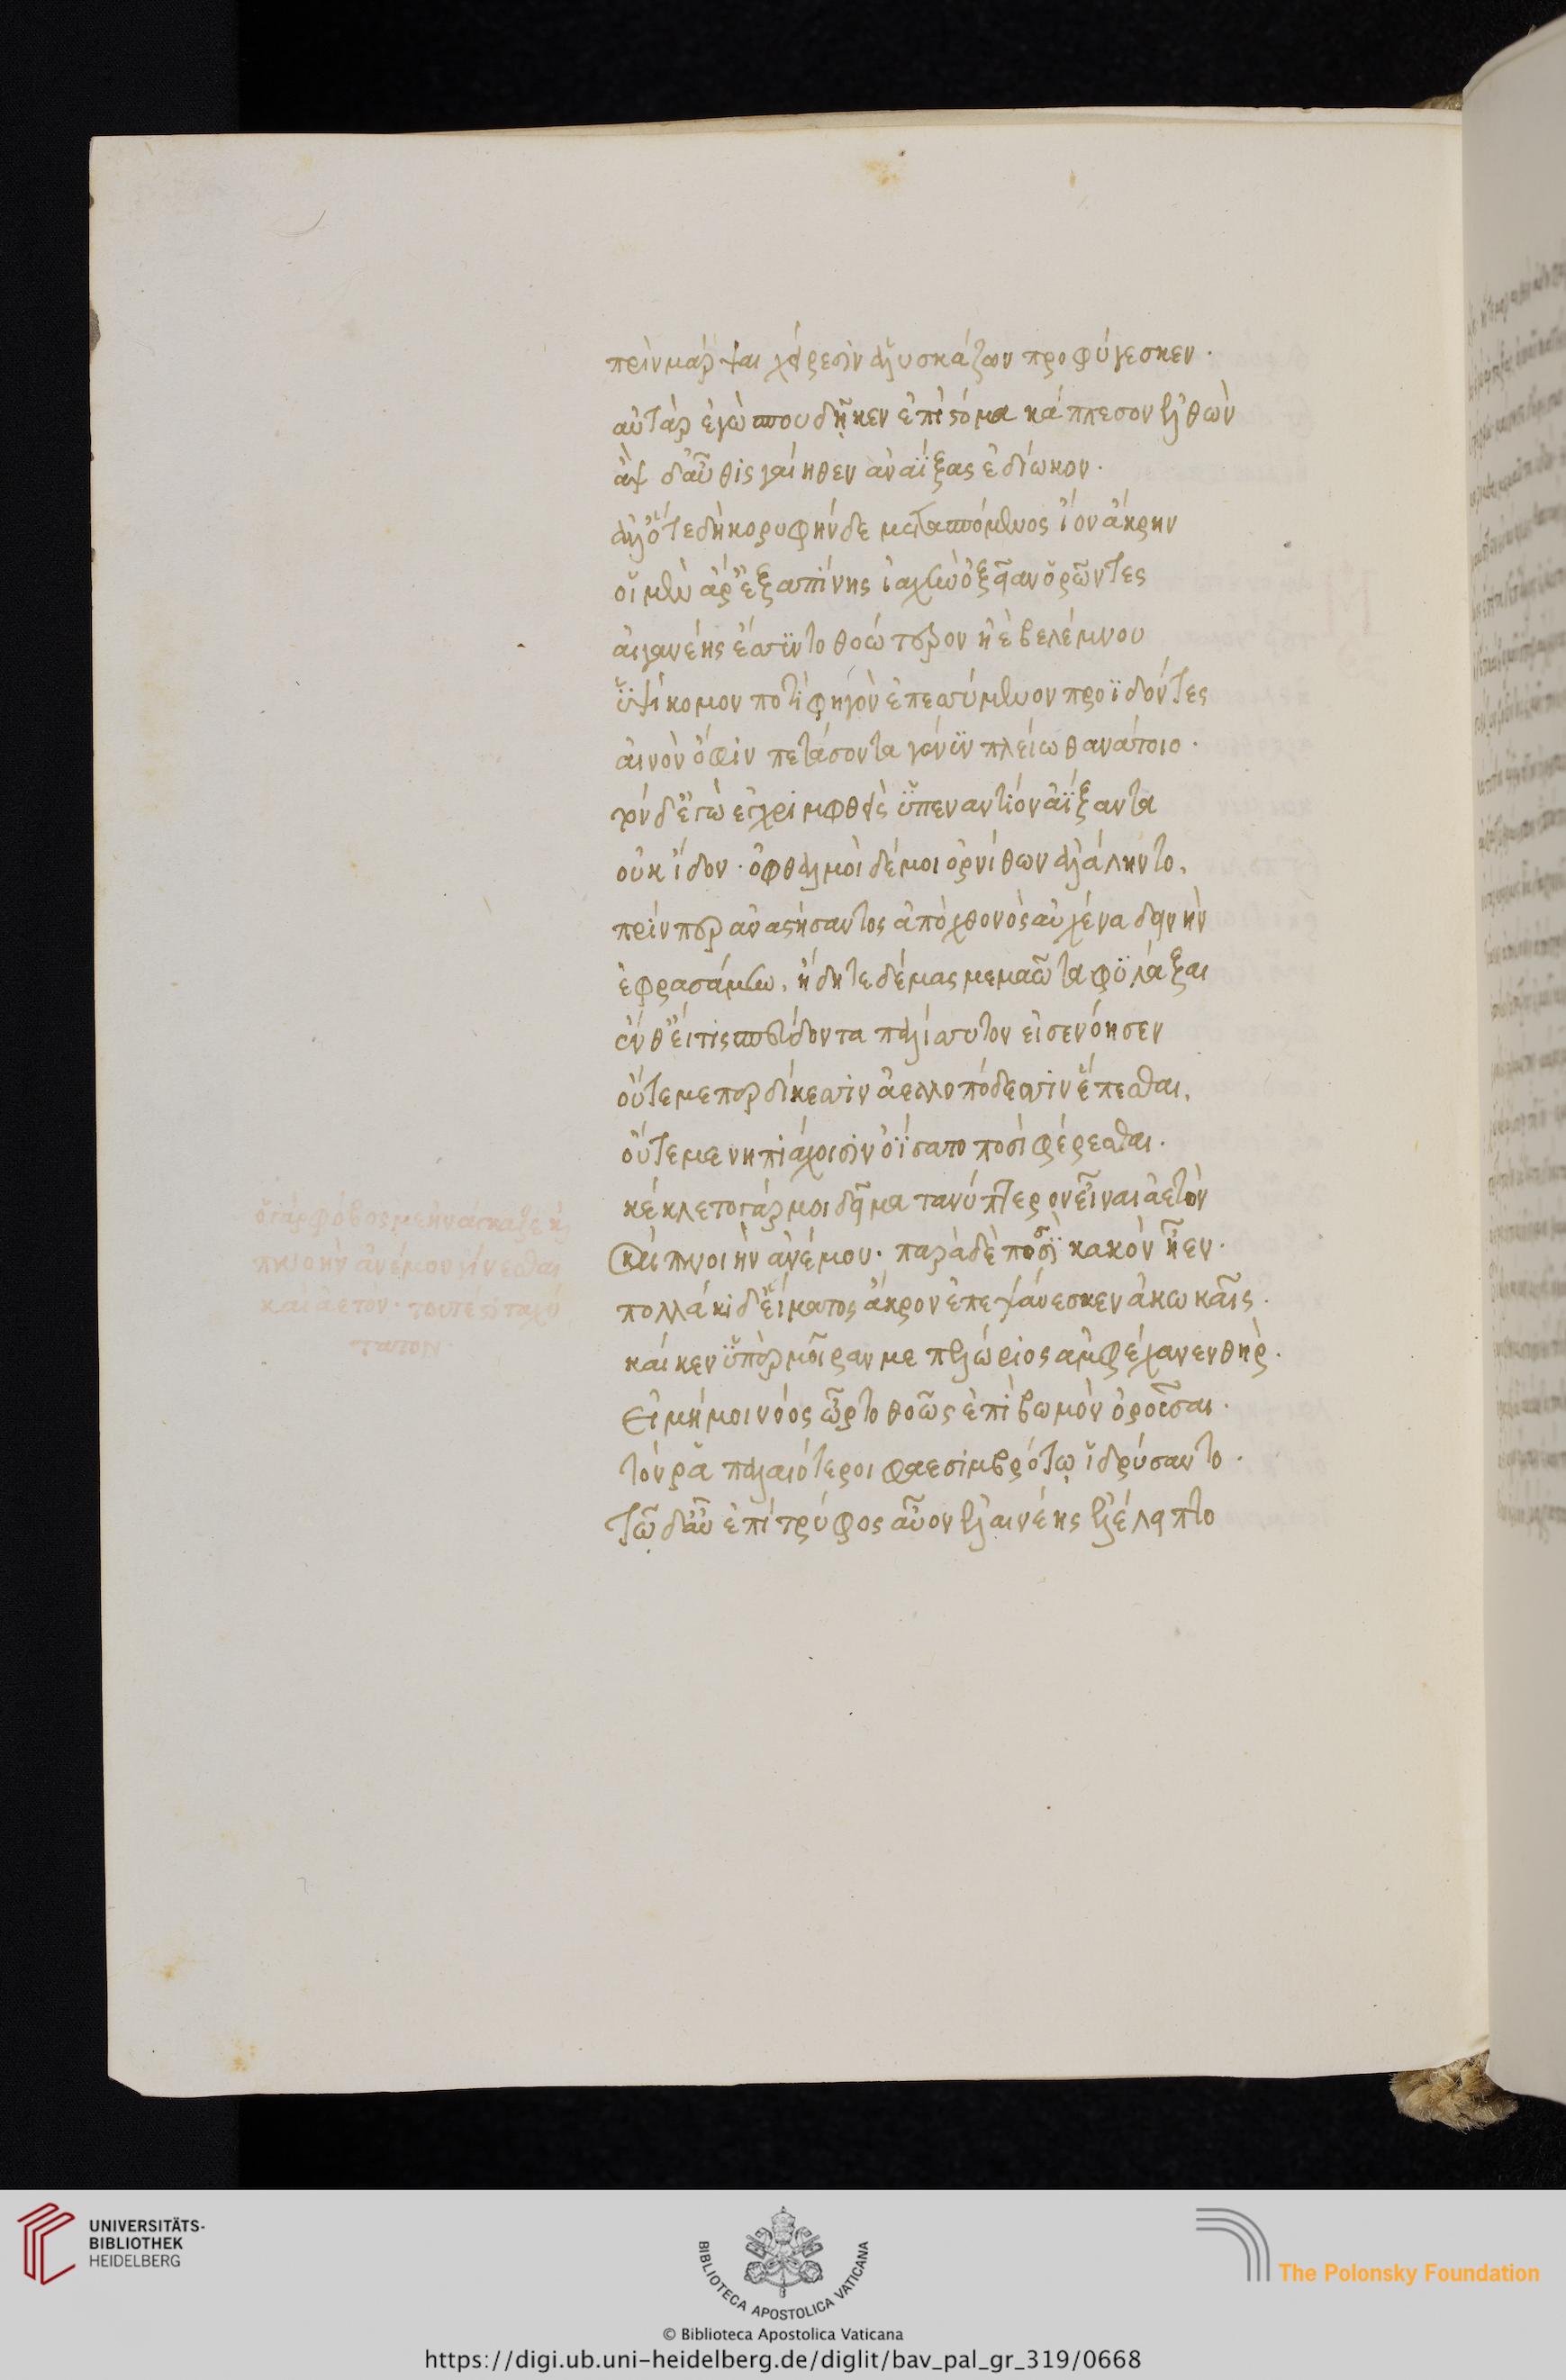 πρὶν μάρψαι χείρεσιν ἀλυσκάζων προφύγεσκεν·
αὐτὰρ ἐγὼ σπουδῇ κεν ἐπὶ στόμα κάππεσον ἐλθὼν
ἂψ δ' αὖθις γαίηθεν ἀναΐξας ἐδίωκον·
ἀλλ' ὅτε δὴ κορυφήνδε μετασπόμενος ἴον ἄκρην
οἳ μὲν ἄρ' ἐξαπίνης ἰαχὴν ὀξεῖαν ὁρῶντες
αἰγανέης ἔσσϋντο θοώτερον ἠὲ βελέμνου
ὑψίκομον ποτὶ φηγὸν ἐπεσσύμενον προϊδόντες
αἰνὸν ὄφιν πετάσοντα γένϋν πλείω θανάτοιο·
τὸν δ' ἐγὼ ἐγχριμφθεὶς ὑπεναντίον ἀΐξαντα
οὐκ ἴδον· ὀφθαλμοὶ δέ μοι ὀρνίθων ἀλάληντο,
πρίν περ ἀναστήσαντος ἀπὸ χθονὸς αὐχένα δεινὴν
ἐφρασάμην, ἤδη τε δέμας μεμαῶτα φϋλάξαι
ἔνθ' εἴ τις σπεύδοντα παλίσσυτον εἰσενόησεν
οὔτε με περδίκεσσιν ἀελλοπόδεσσιν ἕπεσθαι,
οὔτε με νηπιάχοισιν ὀΐσατο ποσὶ φέρεσθαι·
κέκλετο γάρ μοι δεῖμα τανύπτερον εἶναι ἀετὸν
καὶ πνοιὴν ἀνέμου· παρὰ δὲ ποσσῒ κακὸν ἦεν·
πολλάκι δ' εἵματος ἄκρον ἐπεψάυεσκεν ἀκωκαῖς·
καί κεν ὑπὲρ μοῖραν με πελώριος ἀμφέχανεν θὴρ·
εἰ μή μοι νόος ὦρτο θοῶς ἐπὶ βωμὸν ὀροῦσαι·
τόν ῥα παλαιότεροι φαεσιμβρότῳ ἱδρύσαντο·
τῷ δ' αὖ ἐπὶ τρύφος αὖον ἐλαινέης ἐλέλειπτο
ὁ γὰρ φόβος με ἠνάγκαζε κ
πνοιὴν ἀνέμου γίνεσθαι
καὶ ἀετόν· τουτέστι ταχύ
τατον·
UNIVERSITÄTS-
BIBLIOTHEK
HEIDELBERG
BIBLIOTECA APOSTOLICA VATICANA
The Polonsky Foundation
© Biblioteca Apostolica Vaticana
https://digi.ub.uni-heidelberg.de/diglit/bav_pal_gr_319/0668